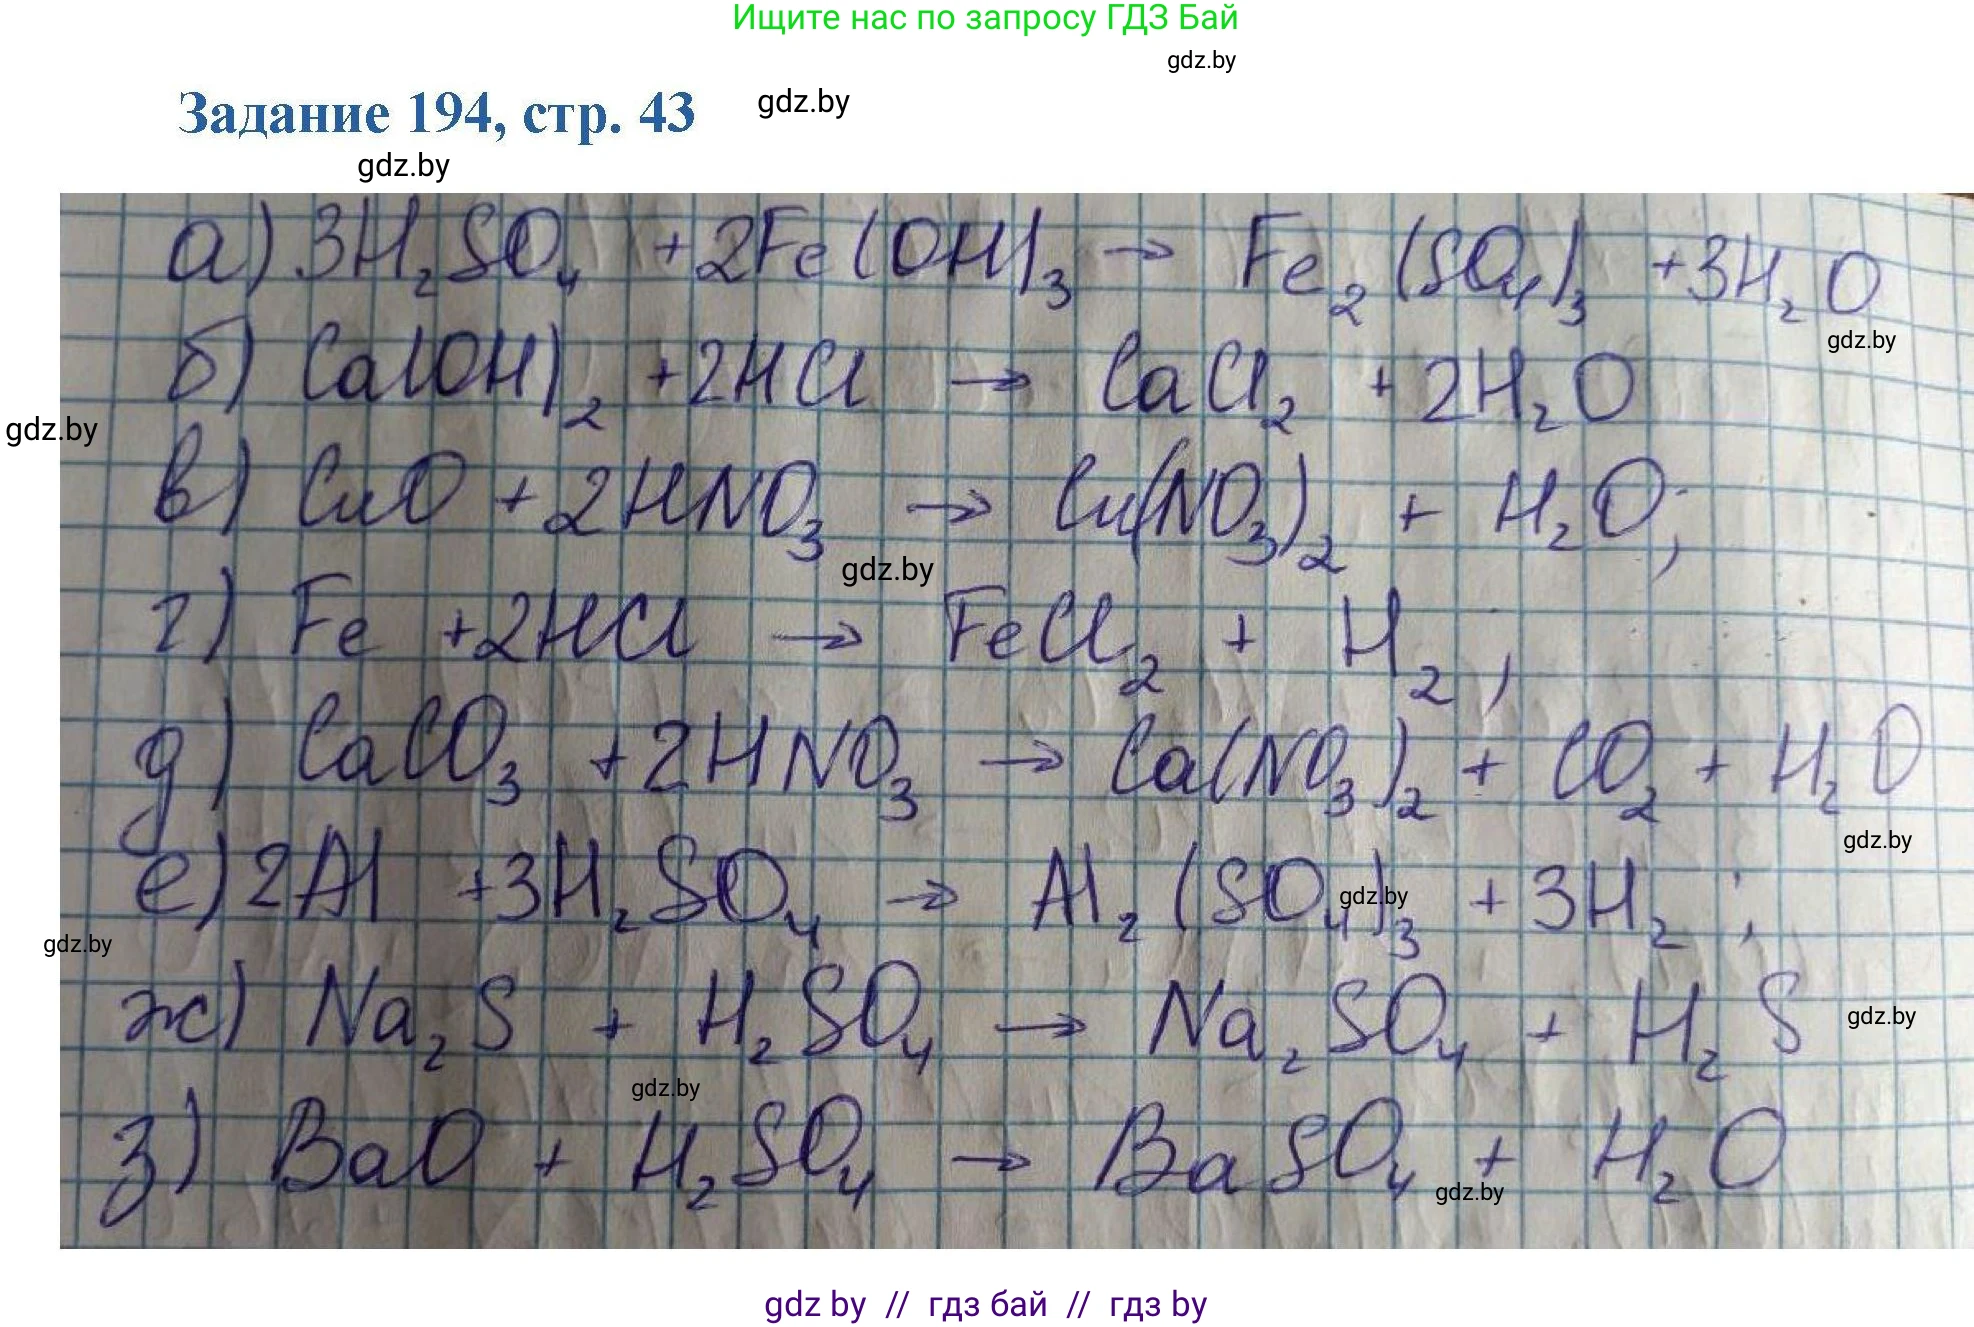 Ищите нас по запросу ГДЗ Бай
gdz.by
Задание 194, стр. 43
gdz.by
gdz.by
а) 3H₂SO₄ +2Fe(OH)₃ → Fe₂(SO₄)₃ +3H₂O
gdz.by
б) Ca(OH)₂ +2HCl → CaCl₂ + 2H₂O
gdz.by
в) CuO + 2HNO₃ → Cu(NO₃)₂ + H₂O;
gdz.by
г) Fe +2HCl → FeCl₂ + H₂,
д) CaCO₃ +2HNO₃ → Ca(NO₃)₂ + CO₂ + H₂O
gdz.by
е) 2Al +3H₂SO₄ → Al₂(SO₄)₃ + 3H₂;
gdz.by
gdz.by
ж) Na₂S + H₂SO₄ → Na₂SO₄ + H₂S
gdz.by
gdz.by
з) BaO + H₂SO₄ → BaSO₄ + H₂O
gdz.by
gdz by // гдз бай // гдз by